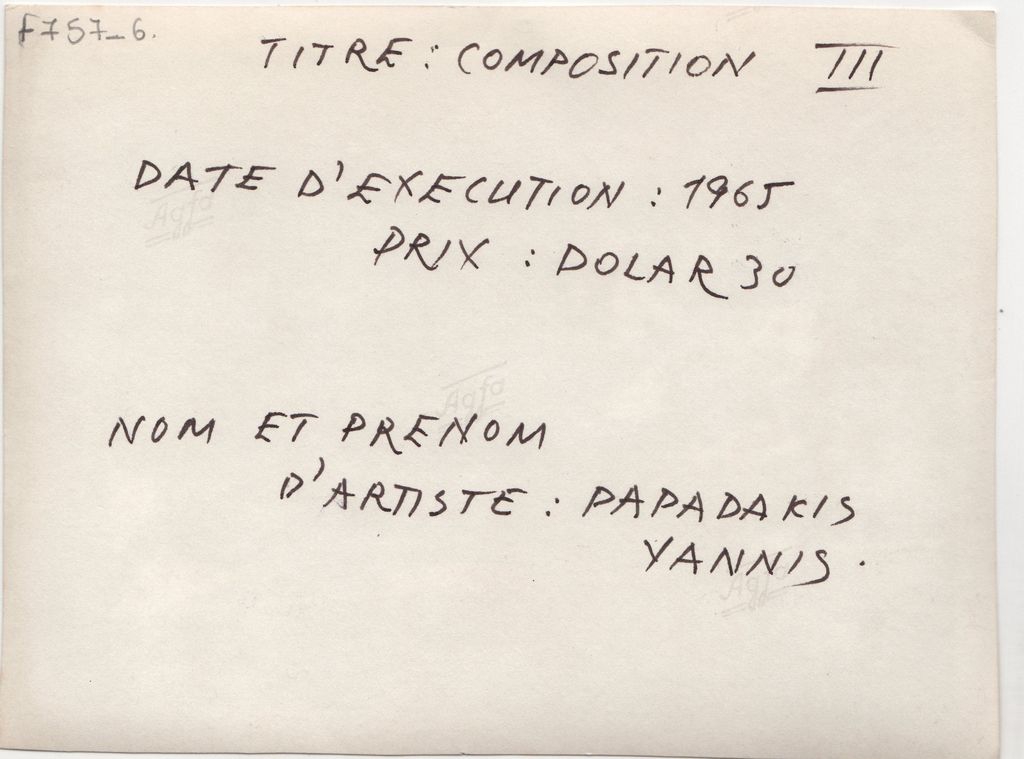 f757_6.
TITRE : COMPOSITION III
DATE D'EXECUTION : 1965
PRIX : DOLAR 30
Agfa
Agfa
NOM ET PRENOM
D'ARTISTE : PAPADAKIS
YANNIS.
Agfa